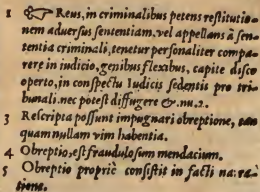 1 ☞ Reus, in criminalibus petens restitutio-
nem adversus sententiam, vel appellans à sen-
tentia criminali, tenetur personaliter compa-
rere in iudicio, genibus flexibus, capite disco
operto, in conspectu Iudicis sedentis pro tri-
bunali. nec potest diffugere & .nu. 2.
3 Rescripta possunt impugnari obreptione, tan
quam nullam vim habentia.
4 Obreptio, est fraudulosum mendacium.
5 Obreptio propriè consistit in facti narra-
tione.